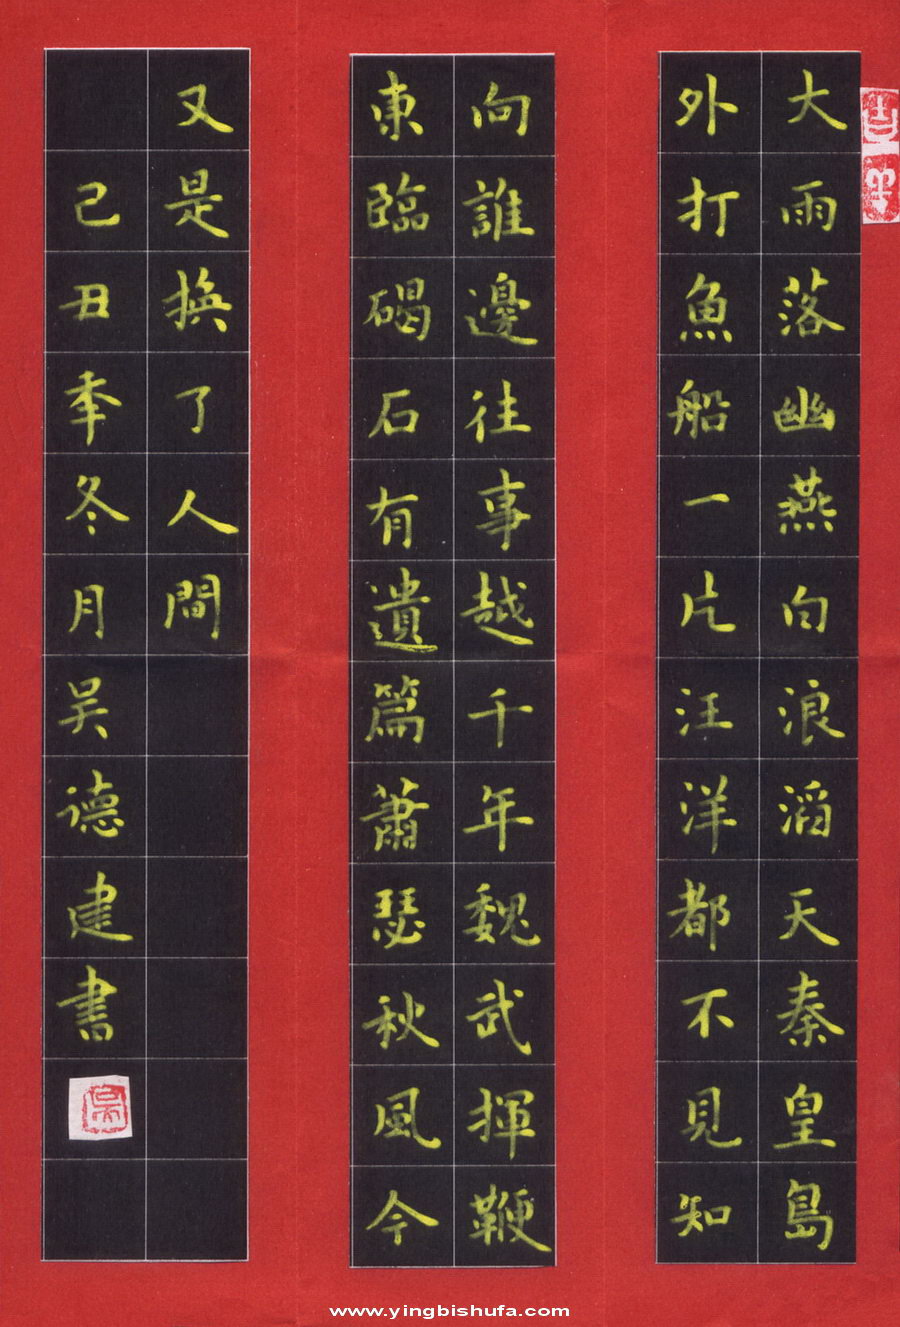 大雨落幽燕白浪滔天秦皇島
外打魚船一片汪洋都不見知
向誰邊往事越千年魏武揮鞭
東臨碣石有遺篇蕭瑟秋風今
又是換了人間
己丑秊冬月吴德建書
www.yingbishufa.com